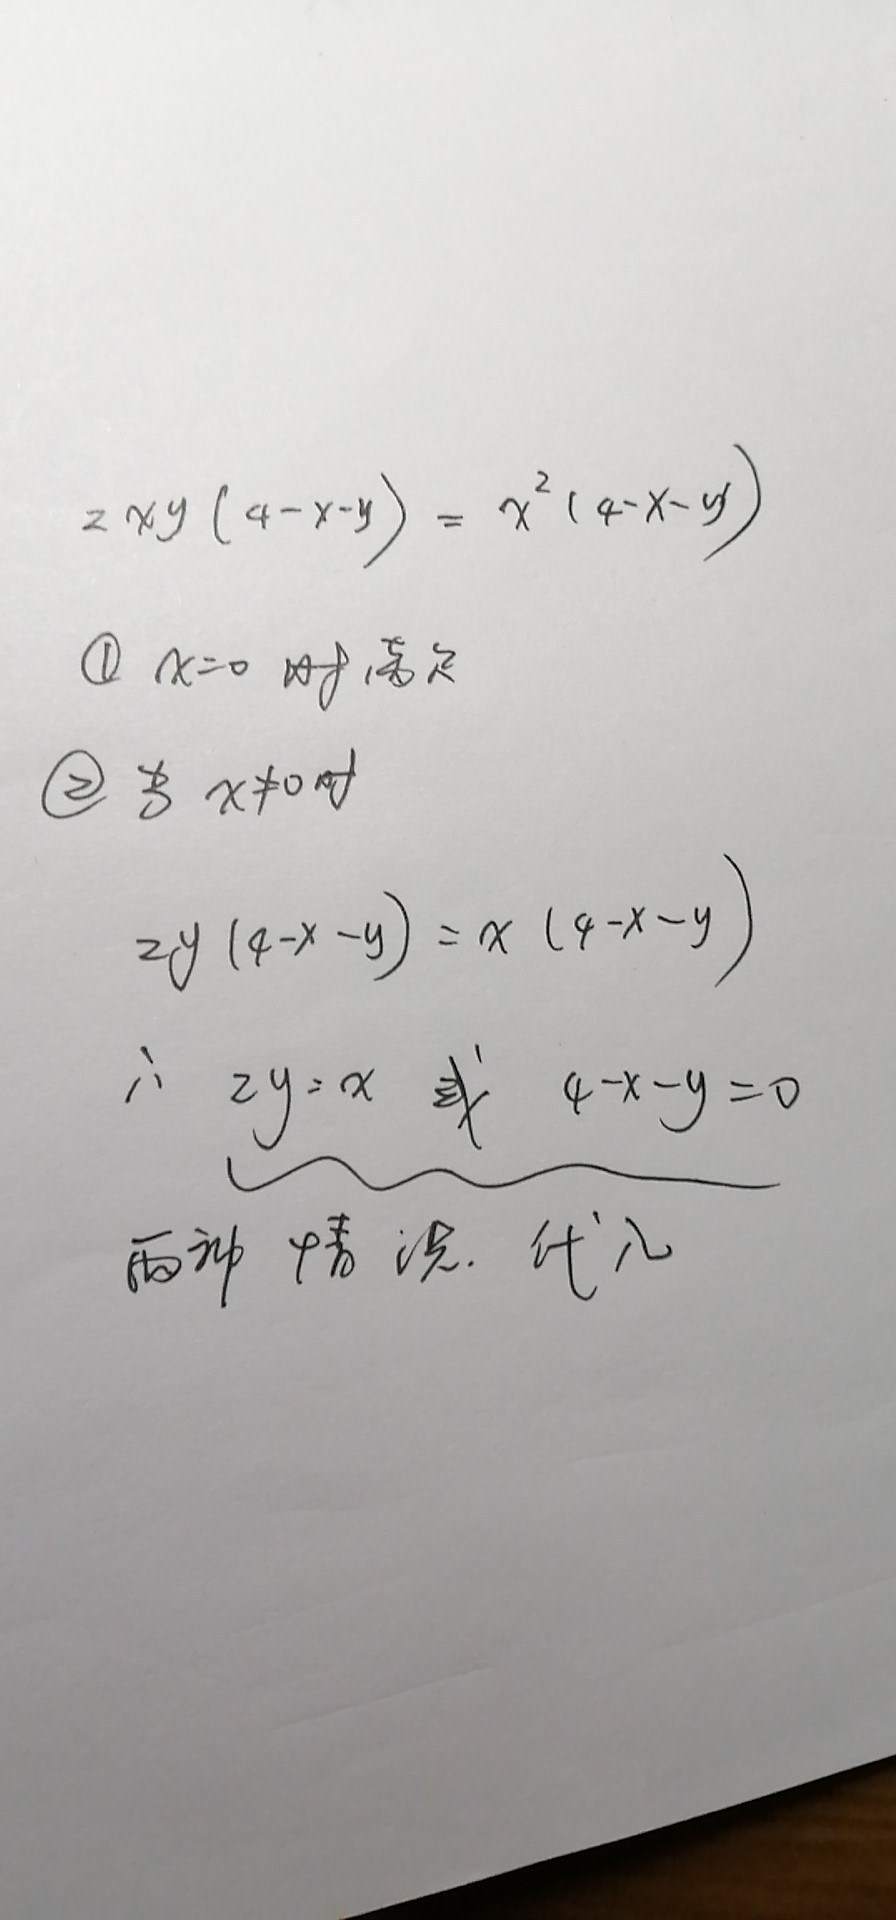 2xy(4-x-y) = x²(4-x-y)
① x=0 时满足
② 当 x≠0时
2y(4-x-y) = x(4-x-y)
∴ 2y=x 或 4-x-y=0
两种情况. 代入